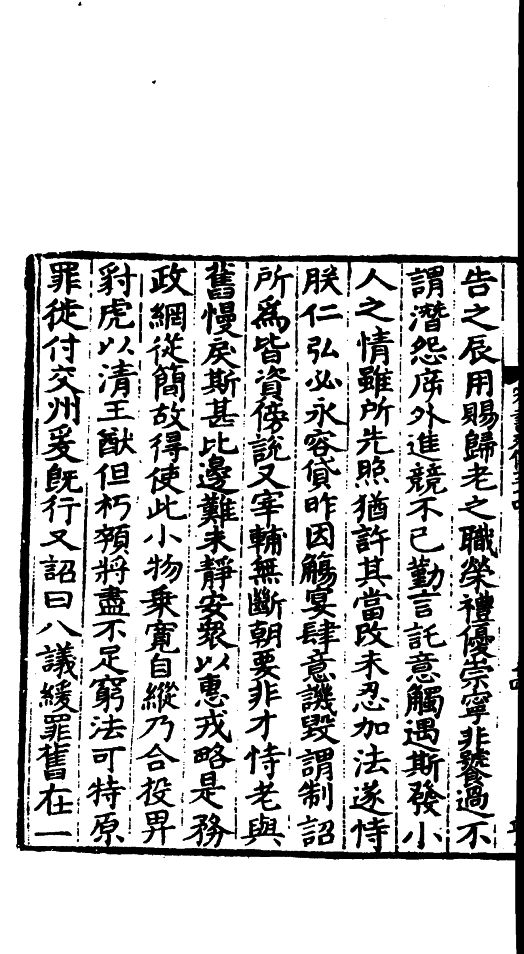 告之辰用賜歸老之職榮禮優崇寧非饕過不
謂潛怨席外進競不已勤言託意觸遇斯發小
人之情雖所先照猶許其當改未忍加法遂恃
朕仁弘必永容貸昨因觴宴肆意譏毀謂制詔
所為皆資傍說又宰輔無斷朝要非才恃老與
舊慢戾斯甚比邊難未靜安衆以惠戎略是務
政網從簡故得使此小物乘寬自縱乃合投畀
豺虎以清王猷但朽顇將盡不足窮法可特原
罪徙付交州爰既行又詔曰八議緩罪舊在一